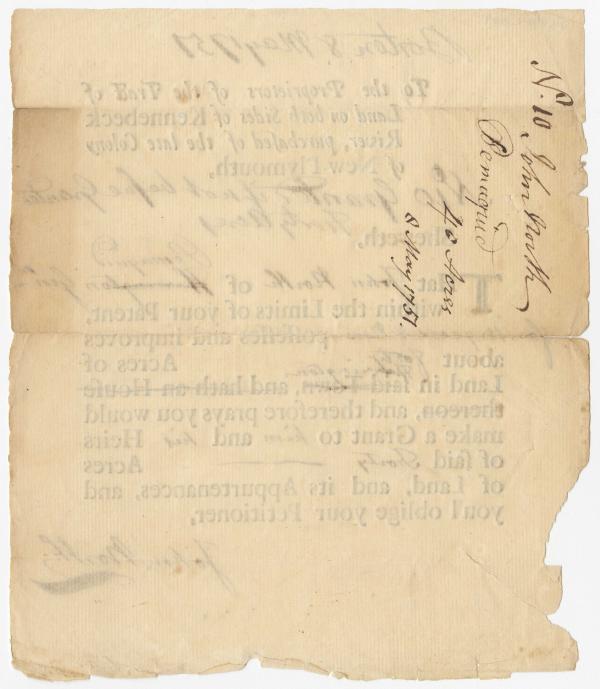 No. 10 John North
Pemaquid
40 Acres
8 May 1751.
Boston 8 May 1751
To the Proprietors of the Tract of
Land on both Sides of Kennebeck
River, purchased of the late Colony
of New-Plymouth,
No Grant
before Granted
Sheweth,
Pemaquid
That John North of
within the Limits of your Patent,
possesses and improves
about Acres of
Land in said Town, and hath an House
thereon, and therefore prays you would
make a Grant to him and his Heirs
of said Forty Acres
of Land, and its Appurtenances, and
you'l oblige your Petitioner,
John North